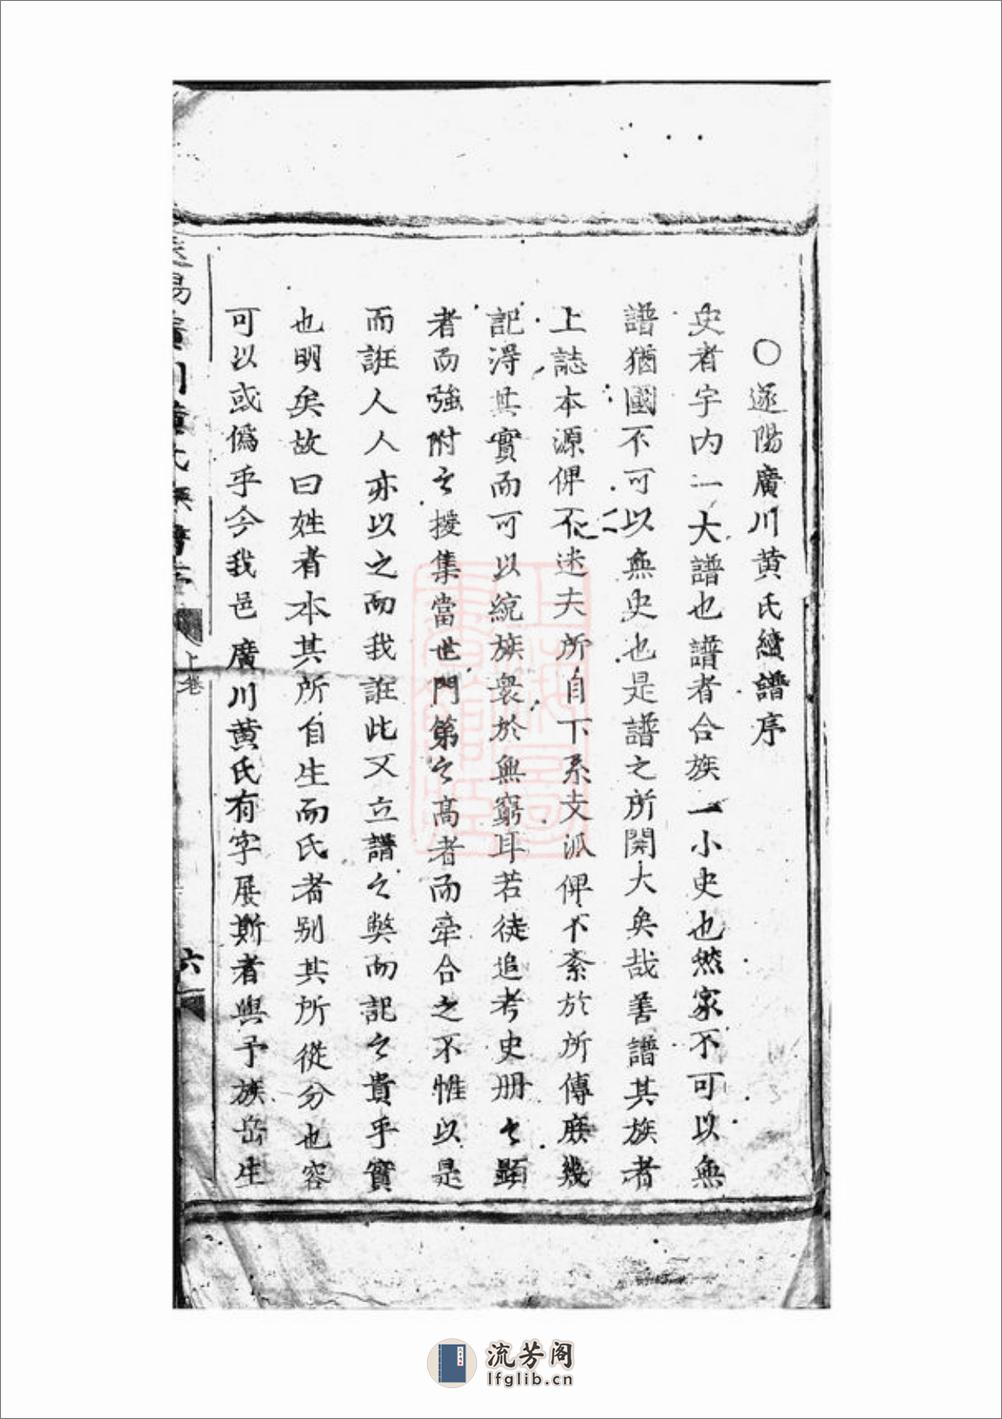 ○遂陽廣川黄氏續譜序
史者宇內一大譜也譜者合族一小史也然家不可以無
譜猶國不可以無史也是譜之所関大矣哉善譜其族者
上誌本源俾不迷夫所自下系支派俾不紊於所傳庶幾
記得其實而可以統族衆於無窮耳若徒追考史册之顯
者而強附之援集當世門第之高者而牽合之不惟以是
而誑人人亦以之而我誑此又立譜之獘而記之貴乎實
也明矣故曰姓者本其所自生而氏者別其所從分也容
可以或僞乎今我邑廣川黄氏有字展斯者與予族岳生
廣川黄氏族譜序
上卷
六
流芳阁
lfglib.cn